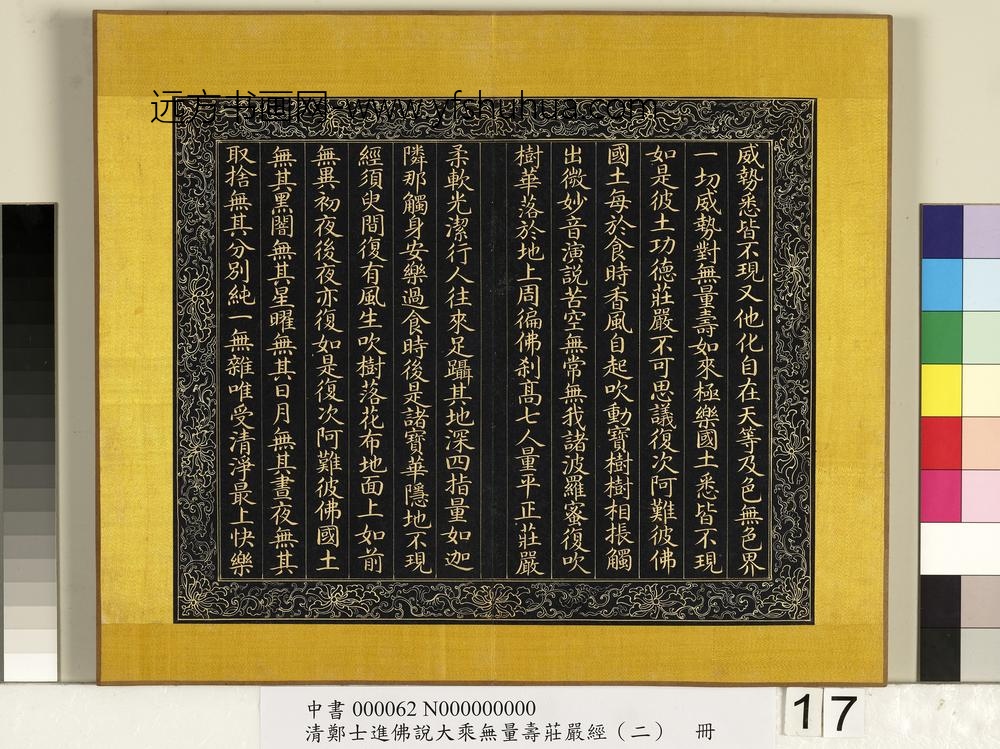 远方书画网 www.yfshuhua.com
威勢悉皆不現又他化自在天等及色無色界
一切威勢對無量壽如來極樂國土悉皆不現
如是彼土功德莊嚴不可思議復次阿難彼佛
國土每於食時香風自起吹動寶樹樹相掁觸
出微妙音演說苦空無常無我諸波羅蜜復吹
樹華落於地上周徧佛剎高七人量平正莊嚴
柔軟光潔行人往來足躡其地深四指量如迦
隣那觸身安樂過食時後是諸寶華隱地不現
經須臾間復有風生吹樹落花布地面上如前
無異初夜後夜亦復如是復次阿難彼佛國土
無其黑闇無其星曜無其日月無其晝夜無其
取捨無其分別純一無雜唯受清淨最上快樂
中書 000062 N000000000
清鄭士進佛說大乘無量壽莊嚴經（二） 冊
17